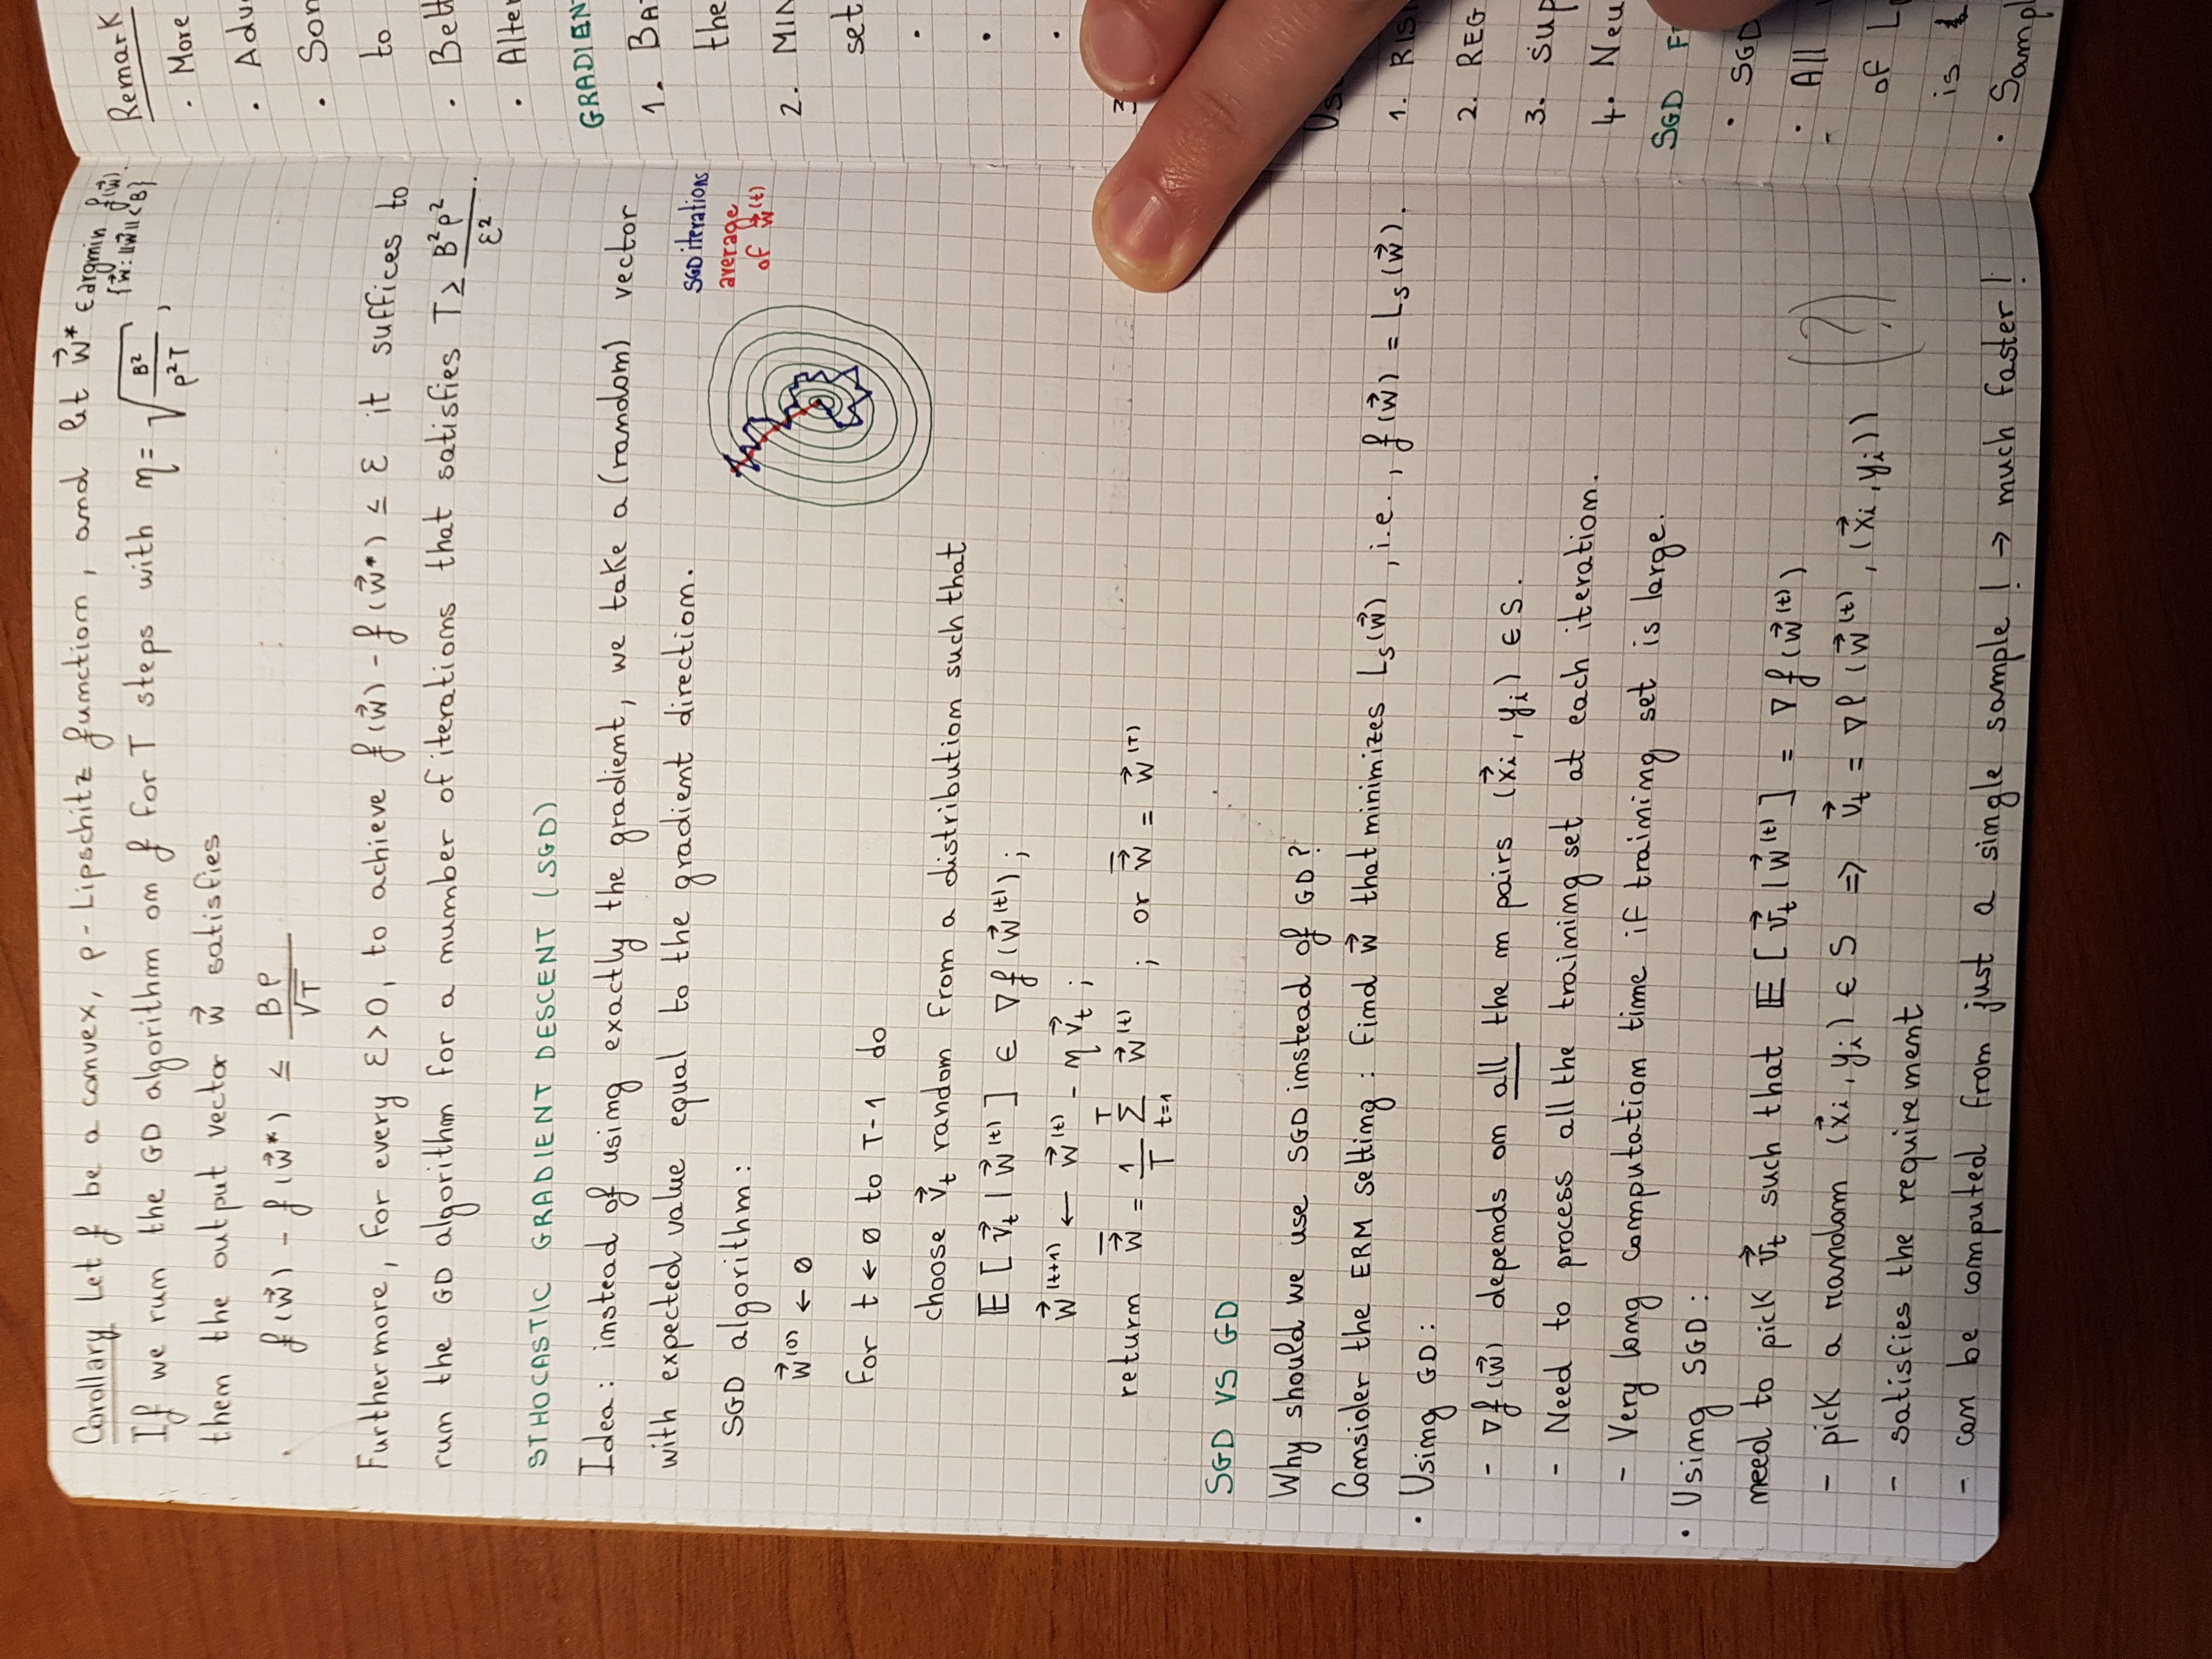 Corollary Let f be a convex, ρ-Lipschitz function, and let w⃗* ∈ argmin f(w⃗).
{w⃗: ||w⃗|| ≤ B}
If we run the GD algorithm on f for T steps with η = √(B²/(ρ²T)),
then the output vector w⃗ satisfies
f(w⃗) - f(w⃗*) ≤ Bρ/√T
Furthermore, for every ε>0, to achieve f(w⃗) - f(w⃗*) ≤ ε it suffices to
run the GD algorithm for a number of iterations that satisfies T ≥ B²ρ²/ε².
STHOCASTIC GRADIENT DESCENT (SGD)
Idea: instead of using exactly the gradient, we take a (random) vector
with expected value equal to the gradient direction.
SGD iterations
average
of w⃗^(t)
SGD algorithm:
w⃗^(0) ← 0
for t ← 0 to T-1 do
choose v⃗_t random from a distribution such that
𝔼[v⃗_t | w⃗^(t)] ∈ ∇f(w⃗^(t));
w⃗^(t+1) ← w⃗^(t) - η v⃗_t;
return w⃗̄ = 1/T Σ_{t=1}^{T} w⃗^(t) ; or w⃗̄ = w⃗^(T)
SGD VS GD
Why should we use SGD instead of GD?
Consider the ERM setting: find w⃗ that minimizes L_S(w⃗), i.e., f(w⃗) = L_S(w⃗).
• Using GD:
- ∇f(w⃗) depends on all the m pairs (x⃗_i, y_i) ∈ S.
- Need to process all the training set at each iteration.
- Very long computation time if training set is large.
• Using SGD:
need to pick v⃗_t such that 𝔼[v⃗_t | w⃗^(t)] = ∇f(w⃗^(t))
- pick a random (x⃗_i, y_i) ∈ S ⇒ v⃗_t = ∇ℓ(w⃗^(t), (x⃗_i, y_i)) (?)
- satisfies the requirement
- can be computed from just a single sample! → much faster!
Remark
• More
•
•
to
•
•
1.
the
2.
set
•
•
•
3
1.
2. REG
3.
4.
SGD
• SGD
• All
of
is
•